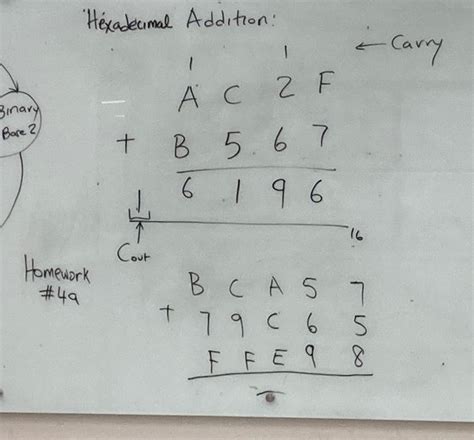 Hexadecimal Addition:
1 1 ← Carry
A C 2 F
Binary
Base 2
+ B 5 6 7
1 6 1 9 6
16
Cout
Homework
#4a
B C A 5 7
+ 7 9 C 6 5
F F E 9 8